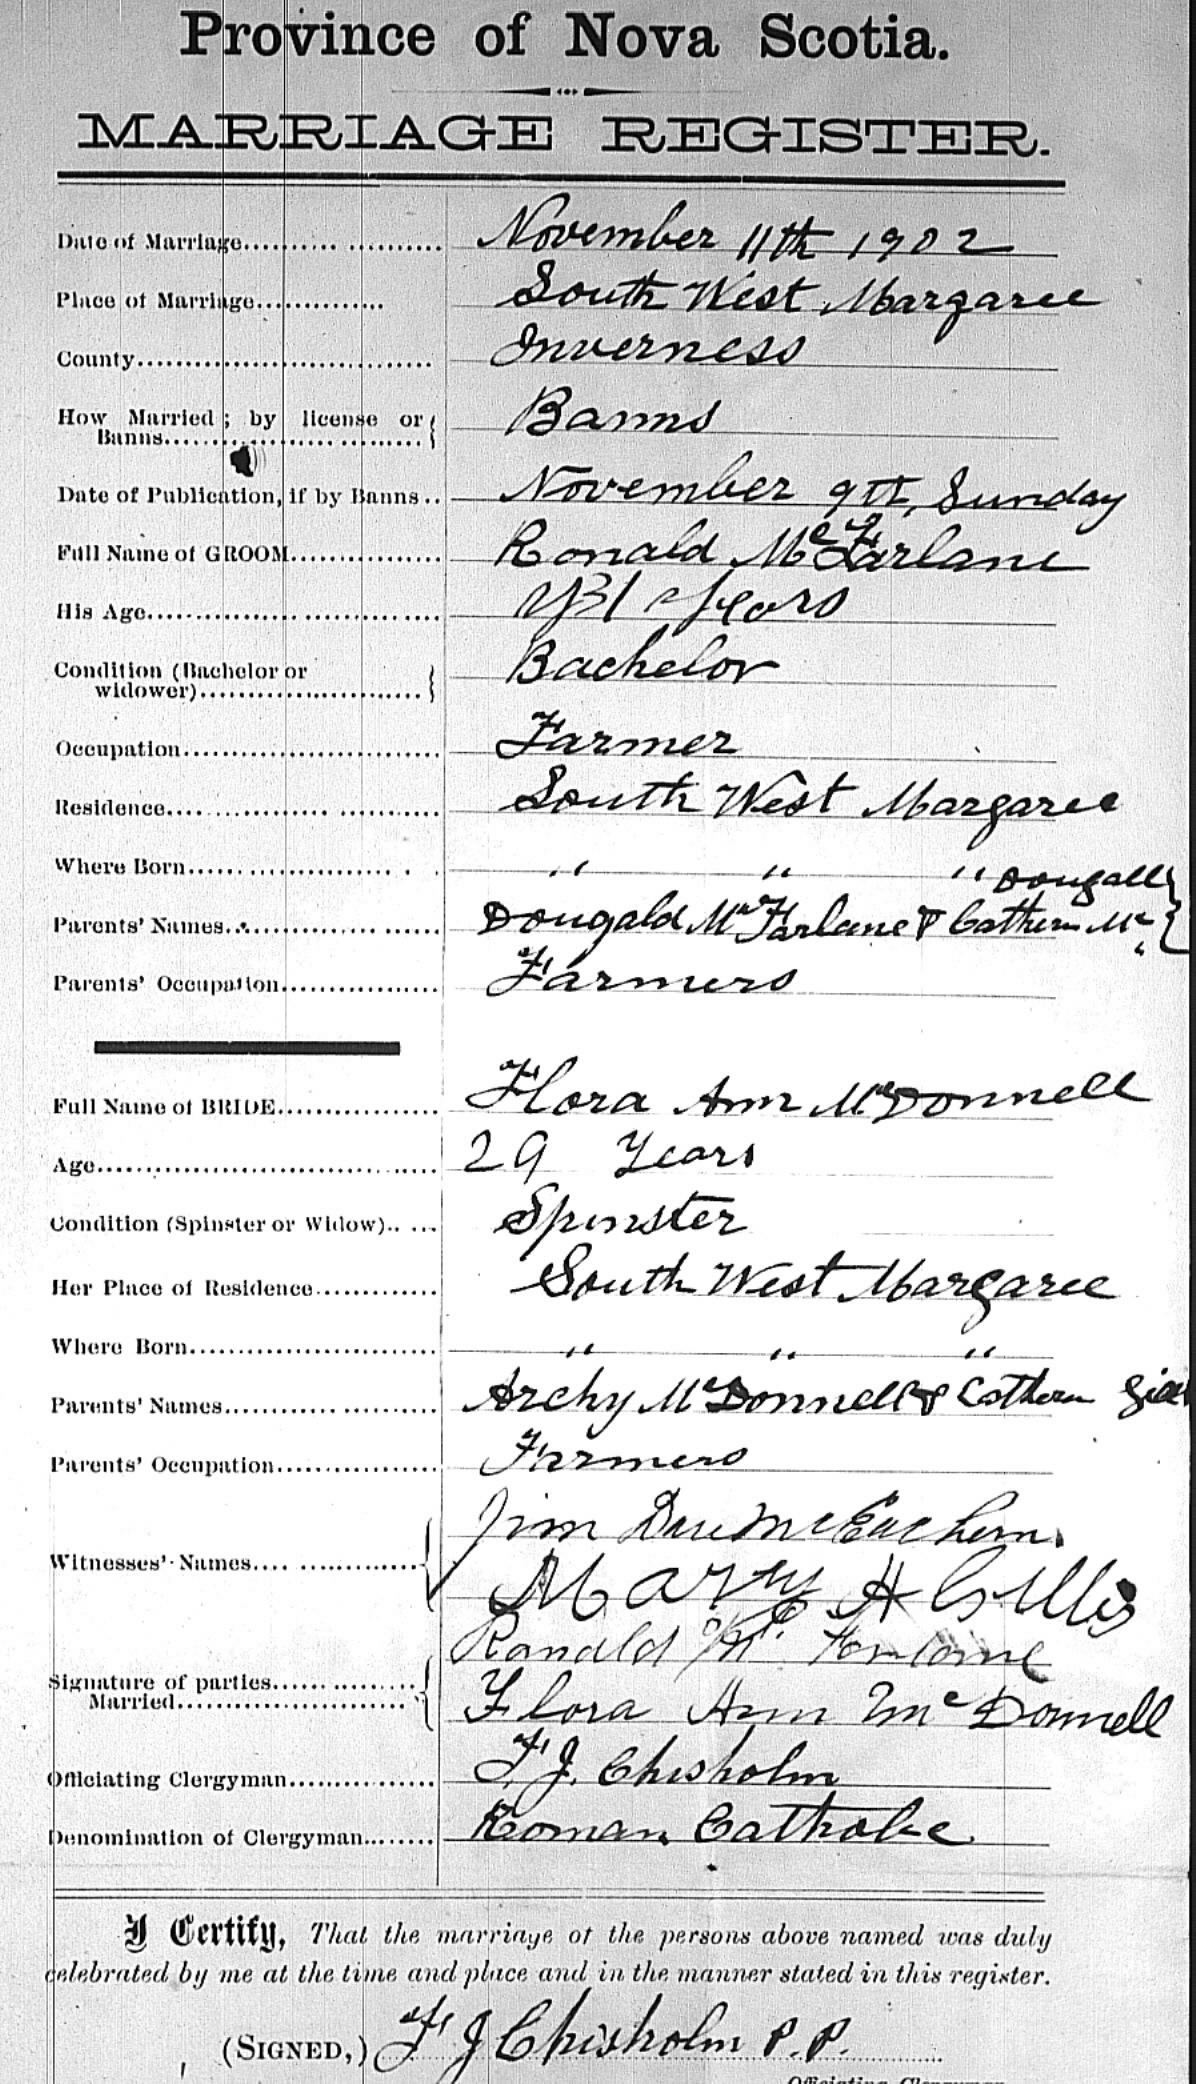 Province of Nova Scotia.
MARRIAGE REGISTER.
Date of Marriage November 11th 1902
Place of Marriage South West Margaree
County Inverness
How Married ; by license or
Banns Banns
Date of Publication, if by Banns November 9th, Sunday
Full Name of GROOM Ronald McFarlane
His Age 31 years
Condition (Bachelor or
widower) Bachelor
Occupation Farmer
Residence South West Margaree
Where Born " " " Dougall
Parents' Names Dougald McFarlane & Cathern Mc
Parents' Occupation Farmers
Full Name of BRIDE Flora Ann McDonnell
Age 29 Years
Condition (Spinster or Widow) Spinster
Her Place of Residence South West Margaree
Where Born " " "
Parents' Names Archy McDonnell & Cathern
Parents' Occupation Farmers
Jim McEachern
Witnesses' Names
Mary H Gillis
Ronald Mc
Signature of parties
Married Flora Ann McDonnell
Officiating Clergyman F. J. Chisholm
Denomination of Clergyman Roman Catholic
I Certify, That the marriage of the persons above named was duly
celebrated by me at the time and place and in the manner stated in this register.
(SIGNED,) F J Chisholm P.P.
Officiating Clergyman